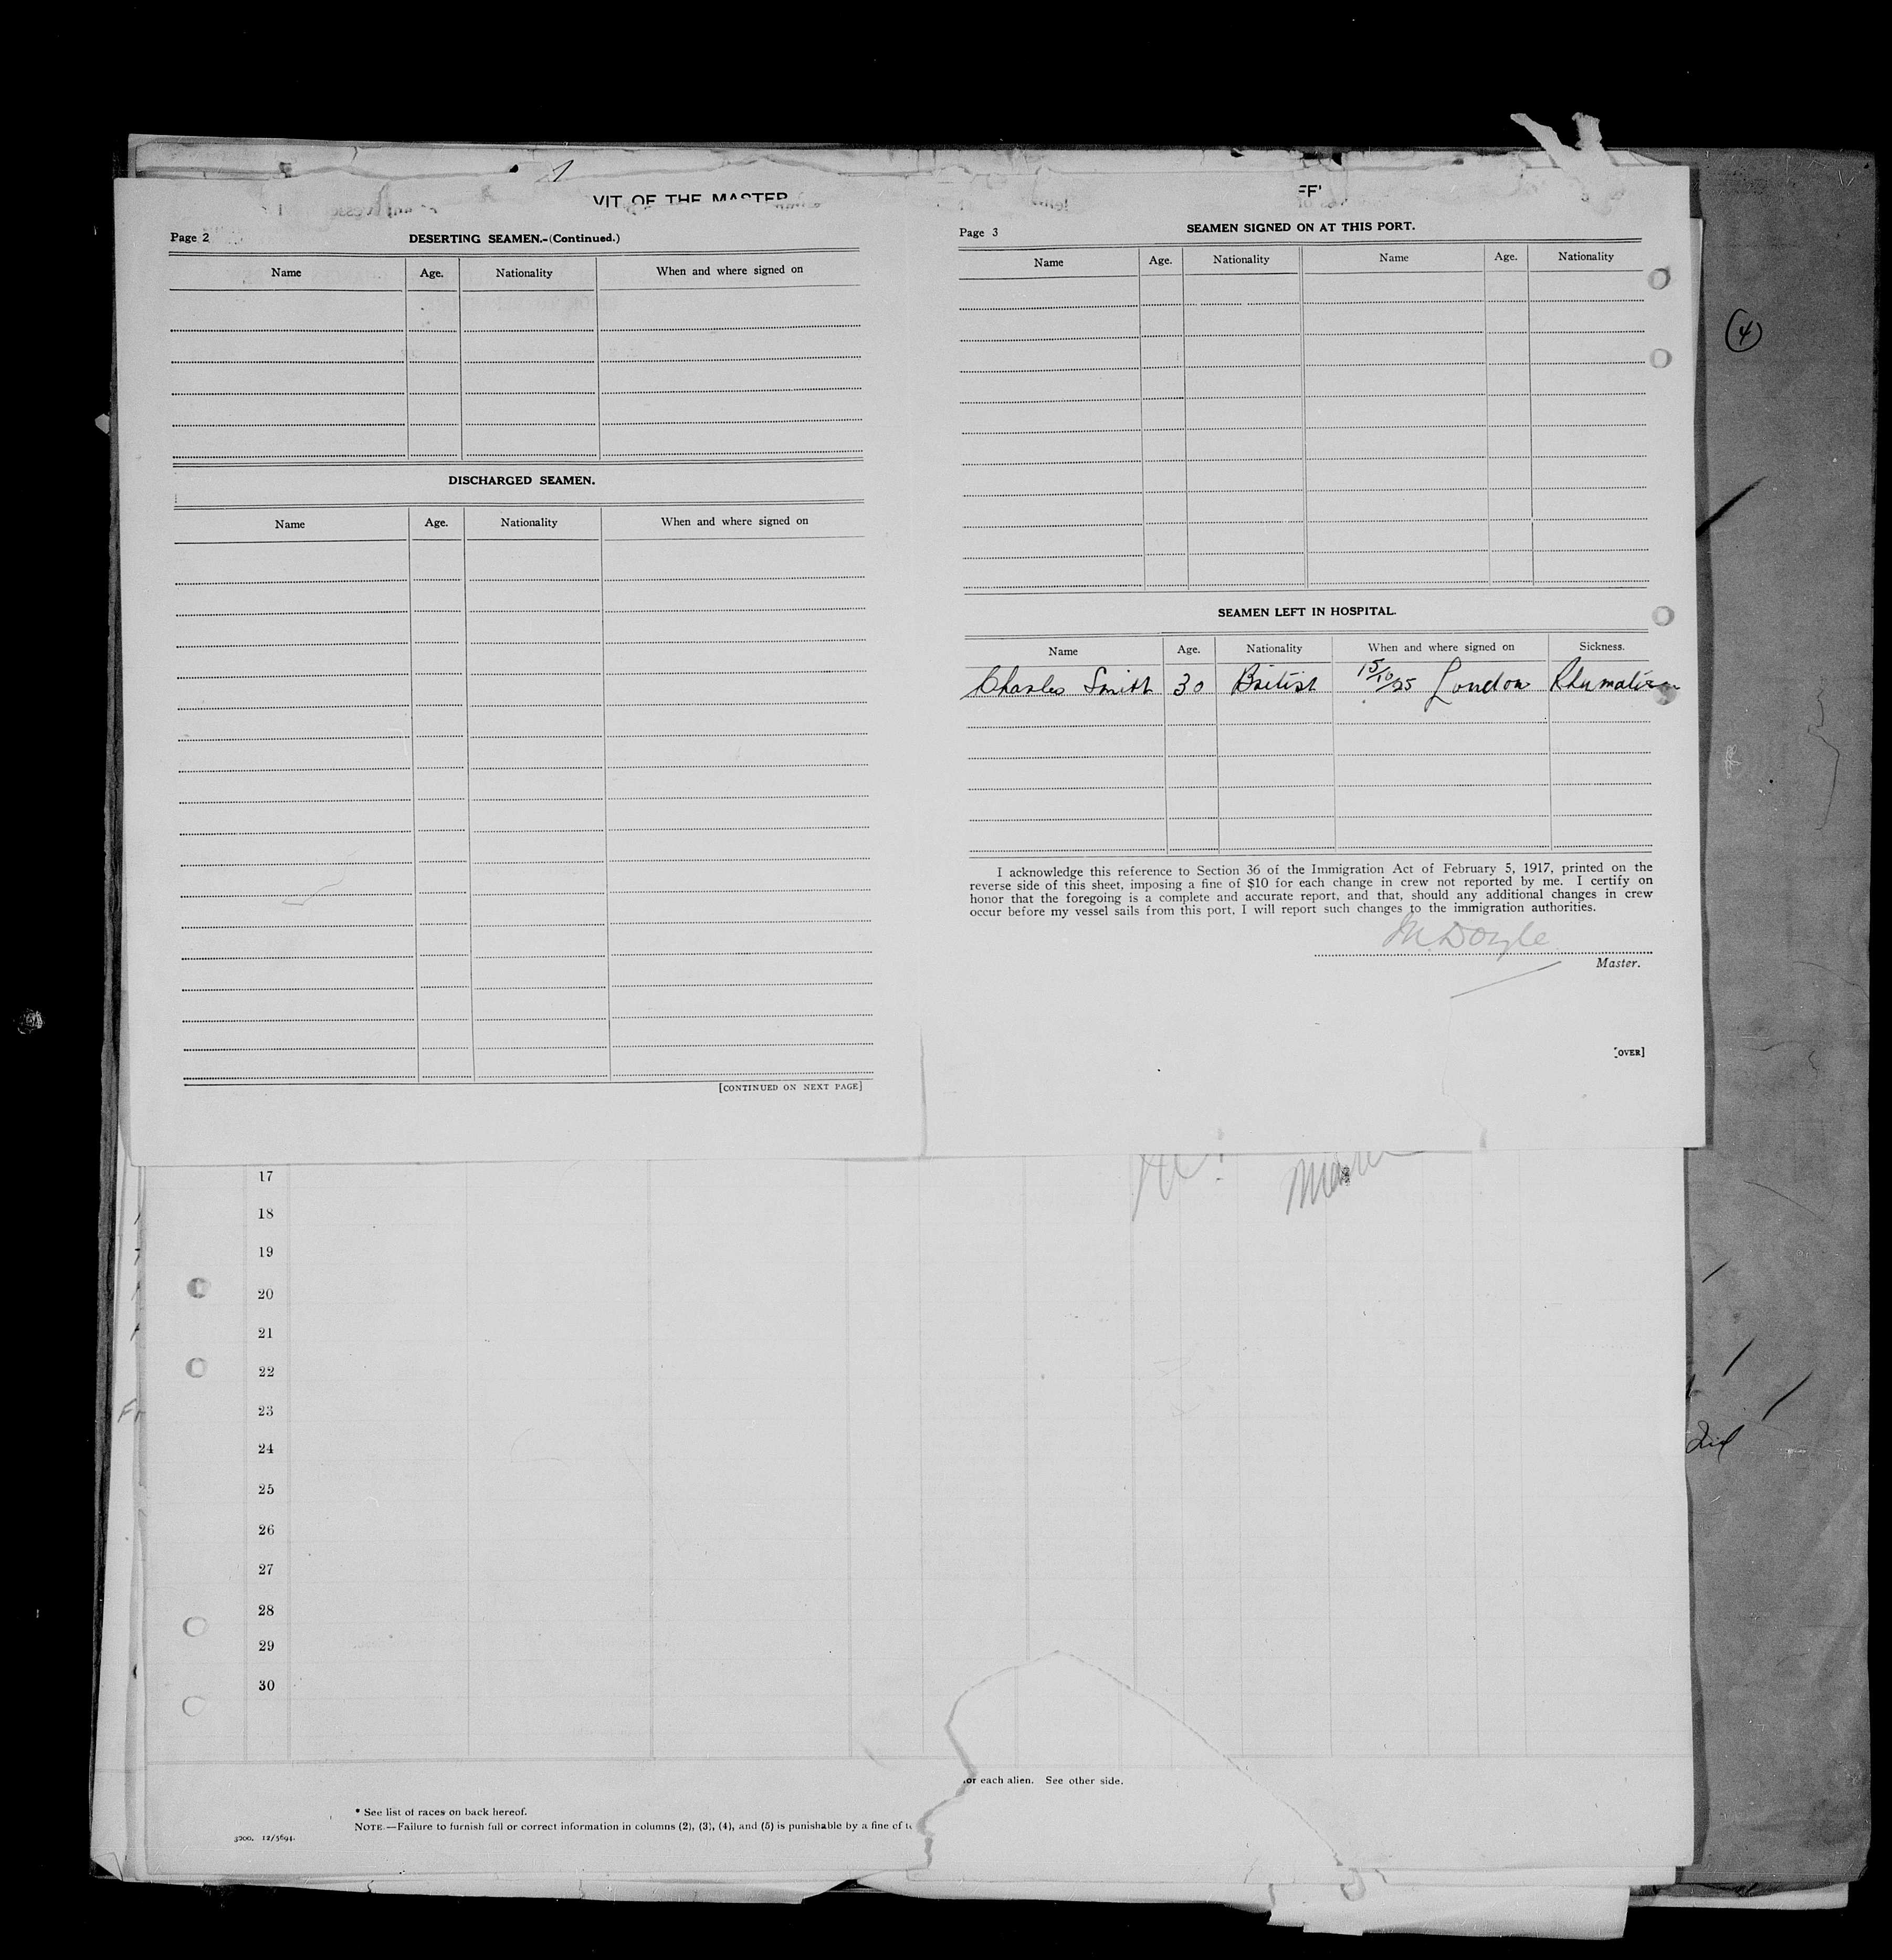 VIT OF THE MASTER
Page 2
DESERTING SEAMEN.-(Continued.)
Name Age. Nationality When and where signed on
DISCHARGED SEAMEN.
Name Age. Nationality When and where signed on
[CONTINUED ON NEXT PAGE]
Page 3
SEAMEN SIGNED ON AT THIS PORT.
Name Age. Nationality Name Age. Nationality
SEAMEN LEFT IN HOSPITAL.
Name Age. Nationality When and where signed on Sickness.
Charles Smith 30 British 15/10/25 London Rhumatism
I acknowledge this reference to Section 36 of the Immigration Act of February 5, 1917, printed on the
reverse side of this sheet, imposing a fine of $10 for each change in crew not reported by me. I certify on
honor that the foregoing is a complete and accurate report, and that, should any additional changes in crew
occur before my vessel sails from this port, I will report such changes to the immigration authorities.
M. Doyle
Master.
[OVER]
(4)
17
18
19
20
21
22
23
24
25
26
27
28
29
30
or each alien. See other side.
* See list of races on back hereof.
NOTE.—Failure to furnish full or correct information in columns (2), (3), (4), and (5) is punishable by a fine of
3200. 12/5694.